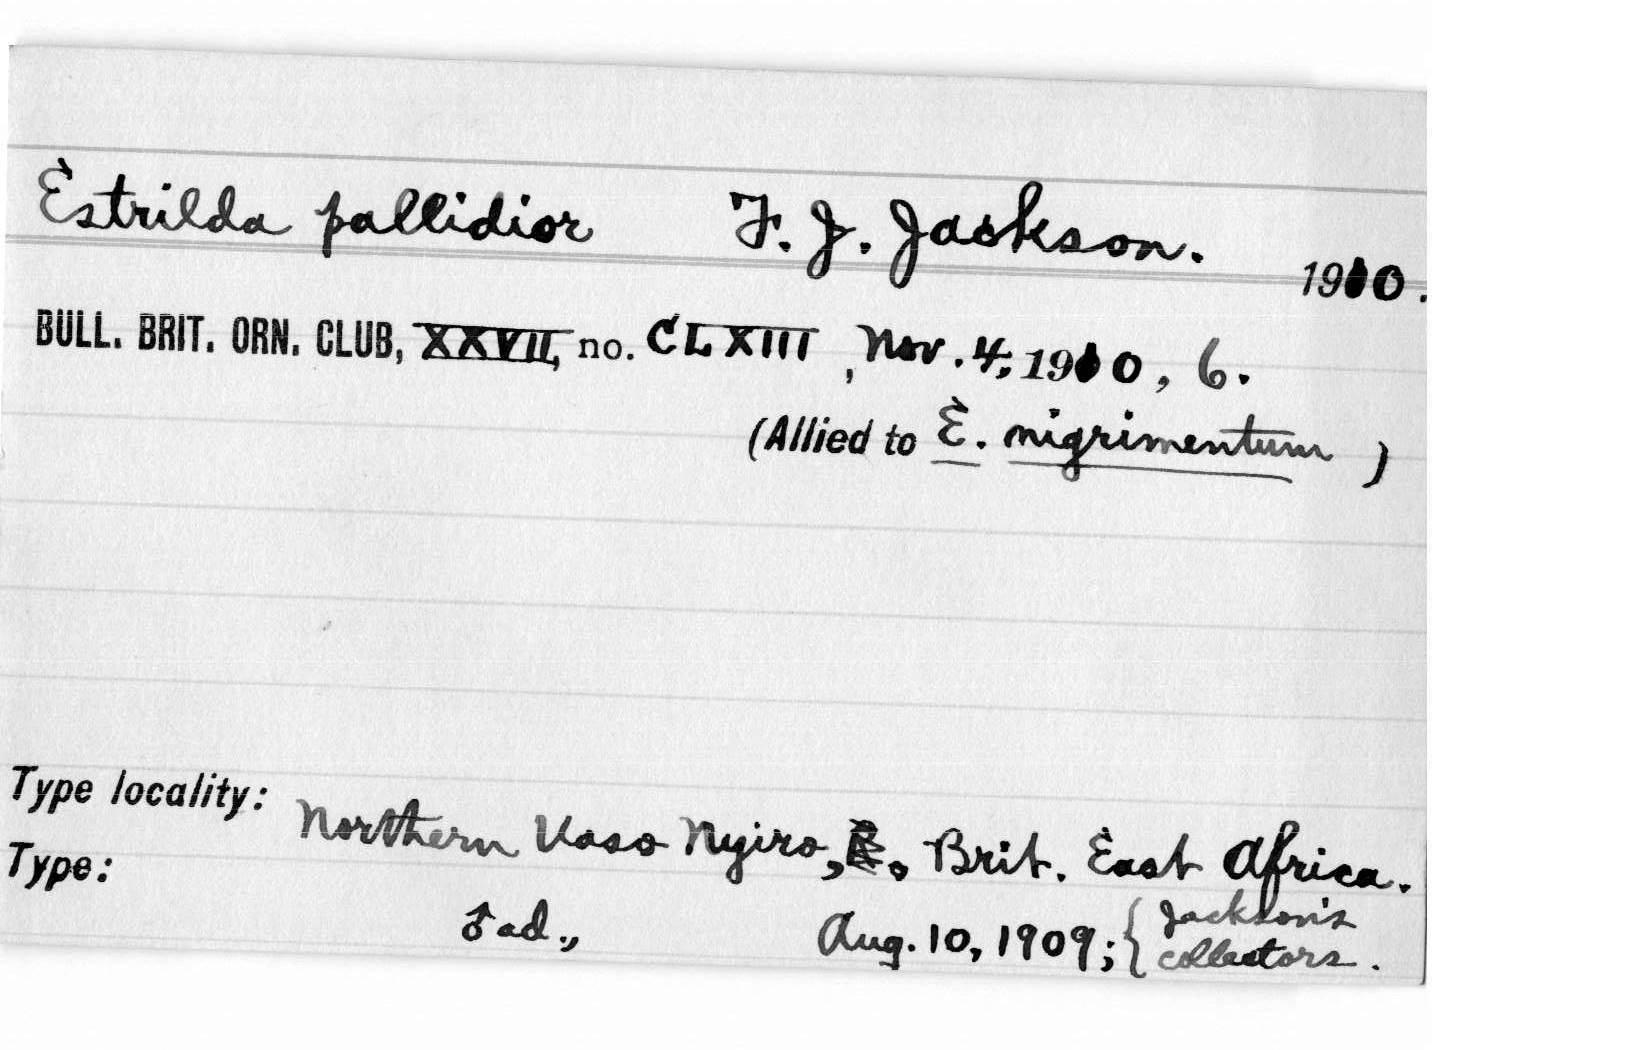 Estrilda pallidior F. J. Jackson. 1910.
BULL. BRIT. ORN. CLUB, XXVII, no. CLXIII, Nov. 4, 1910, 6.
(Allied to E. nigrimentum)
Type locality: Northern Uaso Nyiro, Brit. East Africa.
Type: ♂ ad., Aug. 10, 1909; { Jackson's
collectors.